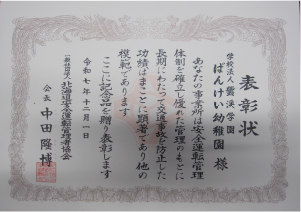 表彰状
学校法人 磐渓学園
ばんけい幼稚園 様
あなたの事業所は安全運転管理
体制を確立し優れた管理のもとに
長期にわたって交通事故を防止した
功績はまことに顕著であり他の
模範であります
ここに記念品を贈り表彰します
令和七年十二月一日
一般社団法人 北海道安全運転管理者協会
会長 中田隆博